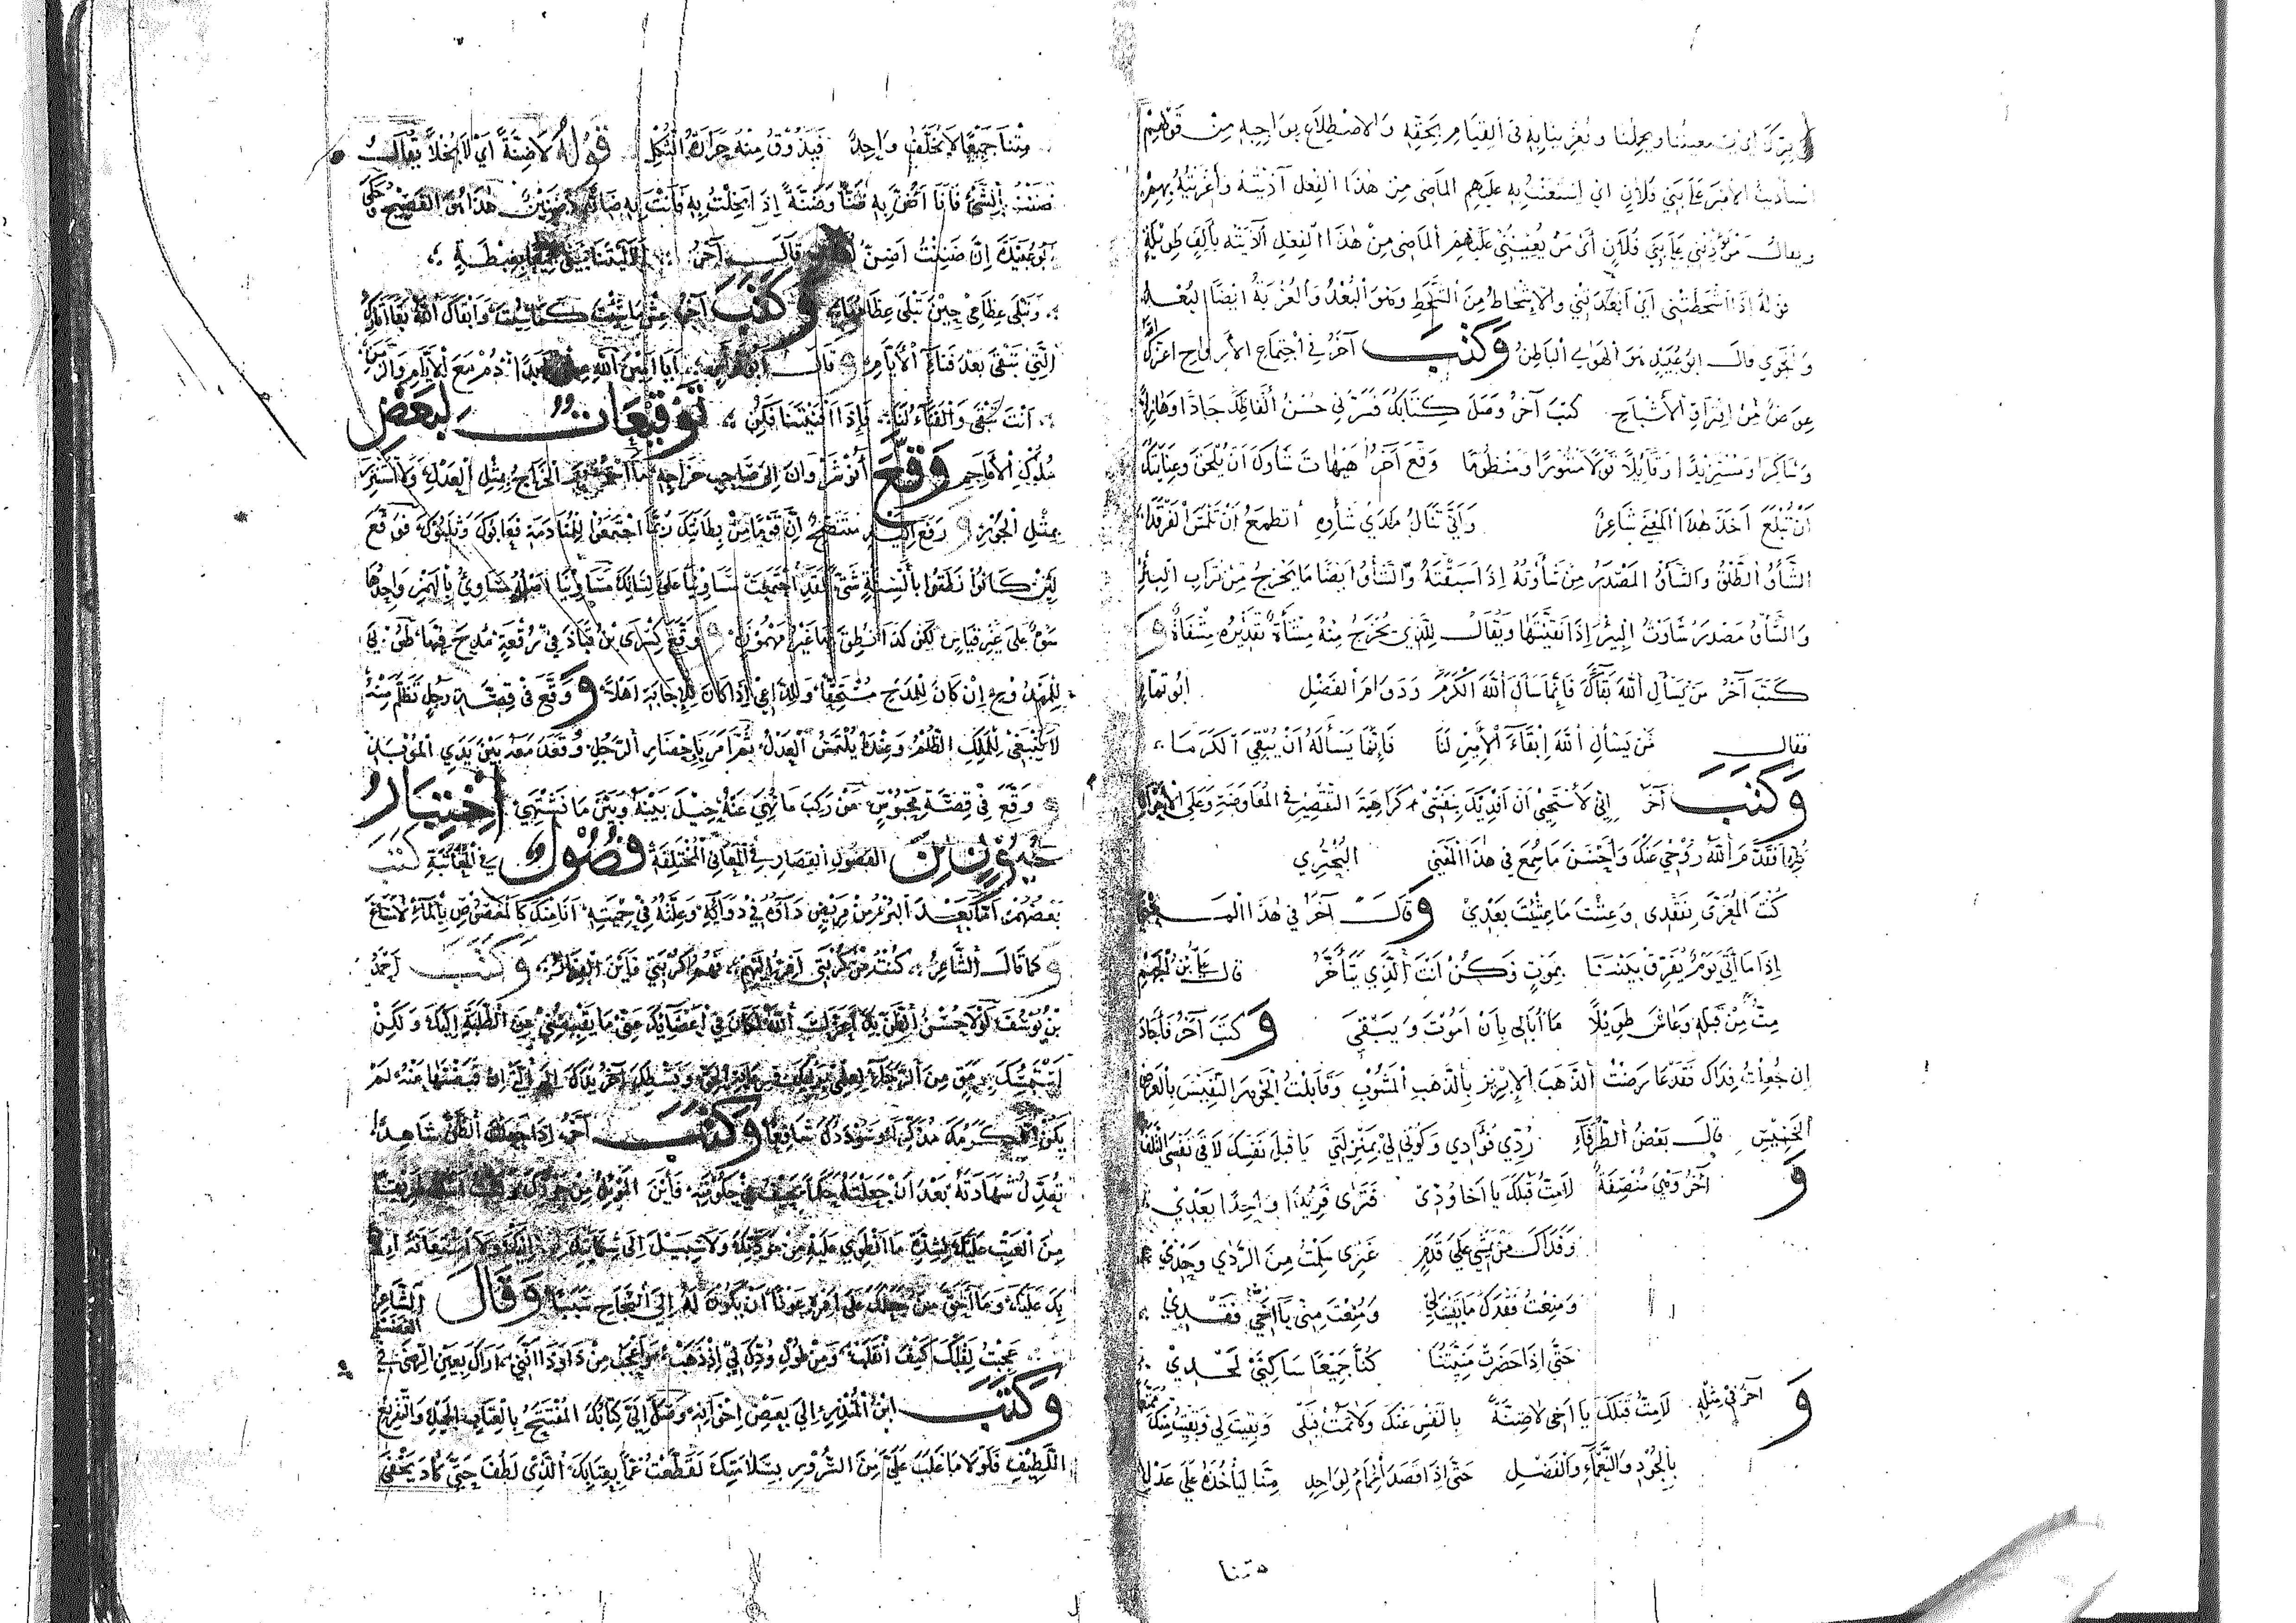 ويحملنا ويغرينا به في القيام بحقه والاضطلاع بواجبه من قولهم
استأديت الأمير على بني فلان أي استعنت به عليهم الماضي من هذا الفعل آذيته وأغريته بهم
ويقال من يؤذيني على بني فلان أي من يعينني عليهم الماضي من هذا الفعل آذيته بألف طويلة
قوله إذا أشحطتني أي أبعدتني والإشحاط من الشحط وهو البعد والغربة أيضا البعد
والجوي قال أبو عبيد هو الهوى الباطن وكتب آخر في اجتماع الأرواح أعزك الله
عوض من افتراق الأشباح كتب آخر وصل كتابك فسرني حسن ألفاظك جادا وهازلا
وشاكرا ومستزيدا وقائلا قولا منثورا ومنظوما وقع آخر هيهات شأوك أن يلحق وغايتك
أن تبلغ أخذ هذا المعنى شاعر وأنى تنال مدى شأوه أتطمع أن تلمس الفرقدا
الشأو الطلق والشأو المصدر من شأوته إذا سبقته والشأو أيضا ما يخرج من تراب البئر
والشأو مصدر شأوت البئر إذا نقيتها ويقال للذي يخرج منه مشآة تقديره مشعاة و
كتب آخر من يسأل الله بقاك فإنما سأل الله الكرم ودوام الفضل أبو تمام
فقال من يسأل الله إبقاء الأمير لنا فإنما يسأله أن يبقي الكرما
وكتب آخر إني لأستحي أن أفديك بنفسي كراهية التقصير في المفاوضة وعلى الأحوال
فقدم الله روحي عنك وأحسن ما سمع في هذا المعنى البحتري
كنت المعزى بفقدي وعشت ما عشت بعدي وقال آخر في هذا المـ
إذا ما أتى يوم يفرق بيننا بموت فكن أنت الذي يتأخر قال علي بن الجهم
مت من قبله وعاش طويلا ما أبالي بأن أموت ويبقى وكتب آخر فأجاد
إن جعلت فداك فقد عارضت الذهب الإبريز بالذهب المشوب وقابلت الجوهر النفيس بالعرض
الخسيس قال بعض الظرفاء ردي فؤادي وكوني لي بمنزلتي يا قبل نفسك لاقى نفسي التلفا
و آخر وهي منصفة لا مت قبلك يا أخا ودي فترى فريدا واحدا بعدي
وفداك من يمشي على قدم غيري سلمت من الردى وحدي
ومنعت فقدك ما بقيت لي ومنعت مني يا أخي فقدي
حتى إذا حضرت منيتنا كنا جميعا ساكني لحد
و آخر في مثله لا مت قبلك يا أخي لا ضنة بالنفس عنك ولا تمت قبلي وبقيت لي وبقيت منك ممتعا
بالجود والنعماء والفضل حتى إذا قصد الحمام لواحد منا ليأخذه على عدل
متنا
متنا جميعا لا يخلف واحد فيذوق منه حرارة الثكل قوله لا ضنة أي لا بخلا يقال
ضننت بالشيء فأنا أضن به ضنا وضنة إذا بخلت به فأنت به ضنين هذا هو الفصيح وحكى
أبو عبيدة إن ضننت أضن قال آخر ألا ليتنا نبقى جميعا بغبطة
وتبلى عظامي حين تبلى عظامها وكتب آخر عش ما شئت كما شئت وأبقاك الله بقاء آثارك
التي تبقى بعد فناء الأيام وقال أبو نواس أيا أمين الله عش أبدا دم مع الأيام والزمن
أنت تبقى والفناء لنا فإذا أفنيتنا فكن توقيعات لبعض
ملوك الأعاجم وقع أنوشروان إلى صاحب خراجه ما استغزر الخراج بمثل العدل ولا استنزر
بمثل الجور و رفع إليه متنصح إن قوما من بطانتك ربما اجتمعوا للمنادمة فعابوك وثلبوك فوقع
لئن كانوا نطقوا بألسنة شتى لقد اجتمعت مساوئها على لسانك مساوئها أصله مساوئ بالهمز واحدها
سوء على غير قياس لكن كذا النطق بها غير مهموزة و وقع كسرى بن قباذ في رقعة مدح فيها طوبى
للممدوح إن كان للمدح مستحقا وللداعي إذا كان للإجابة أهلا ووقع في قصة رجل تظلم منه
لا ينبغي للملك الظلم وعنده يلتمس العدل ثم أمر بإحضار الرجل وقعد معه بين يدي الموبذ
و وقع في قصة محبوس من ركب ما نهي عنه حيل بينه وبين ما يشتهي اختيار
الفصول القصار في المعاني المختلفة فصول في المعاتبة كتب
بعضهم أما بعد البرء من مريض داؤه في دوائه وعلته في حميته أنا منك كالمغصوص بالماء لا يساغ
وكما قال الشاعر كنت من كربتي أفر إليهم فهم كربتي فأين الفرار وكتب أحمد
بن يوسف لولا حسن الظن بك أعزك الله لكان في إغضائك عني ما يقبضني عن الطلبة إليك ولكن
استمسك برمق من الرجاء
يكن كرمك وسؤددك شافعا وكتب آخر إذا جعلت الظن شاهدا
تعدل شهادته بعد أن جعلته حكما يحيف في حكومته فأين الموئل من جورك
من العتب عليك لشدة ما أنطوي عليه من مودتك ولا سبيل إلى شكايتك إلا إليك ولا استعانة إلا
بك عليك وما أحق من جعلك على أمر عونا أن يكون له إلى النجاح سببا وقال الشاعر
عجبت لقلبك كيف انقلب ومن طول ودك لي إذ ذهب وأعجب من ذا وذا أنني أراك بعين الرضى في الغضب
وكتب ابن المنذر إلى بعض إخوانه وصل إلي كتابك المفتتح بالعتاب الجميل والتقريع
اللطيف فلولا ما غلب علي من السرور بسلامتك لقطعت غما بعتابك الذي لطف حتى كاد يخفى